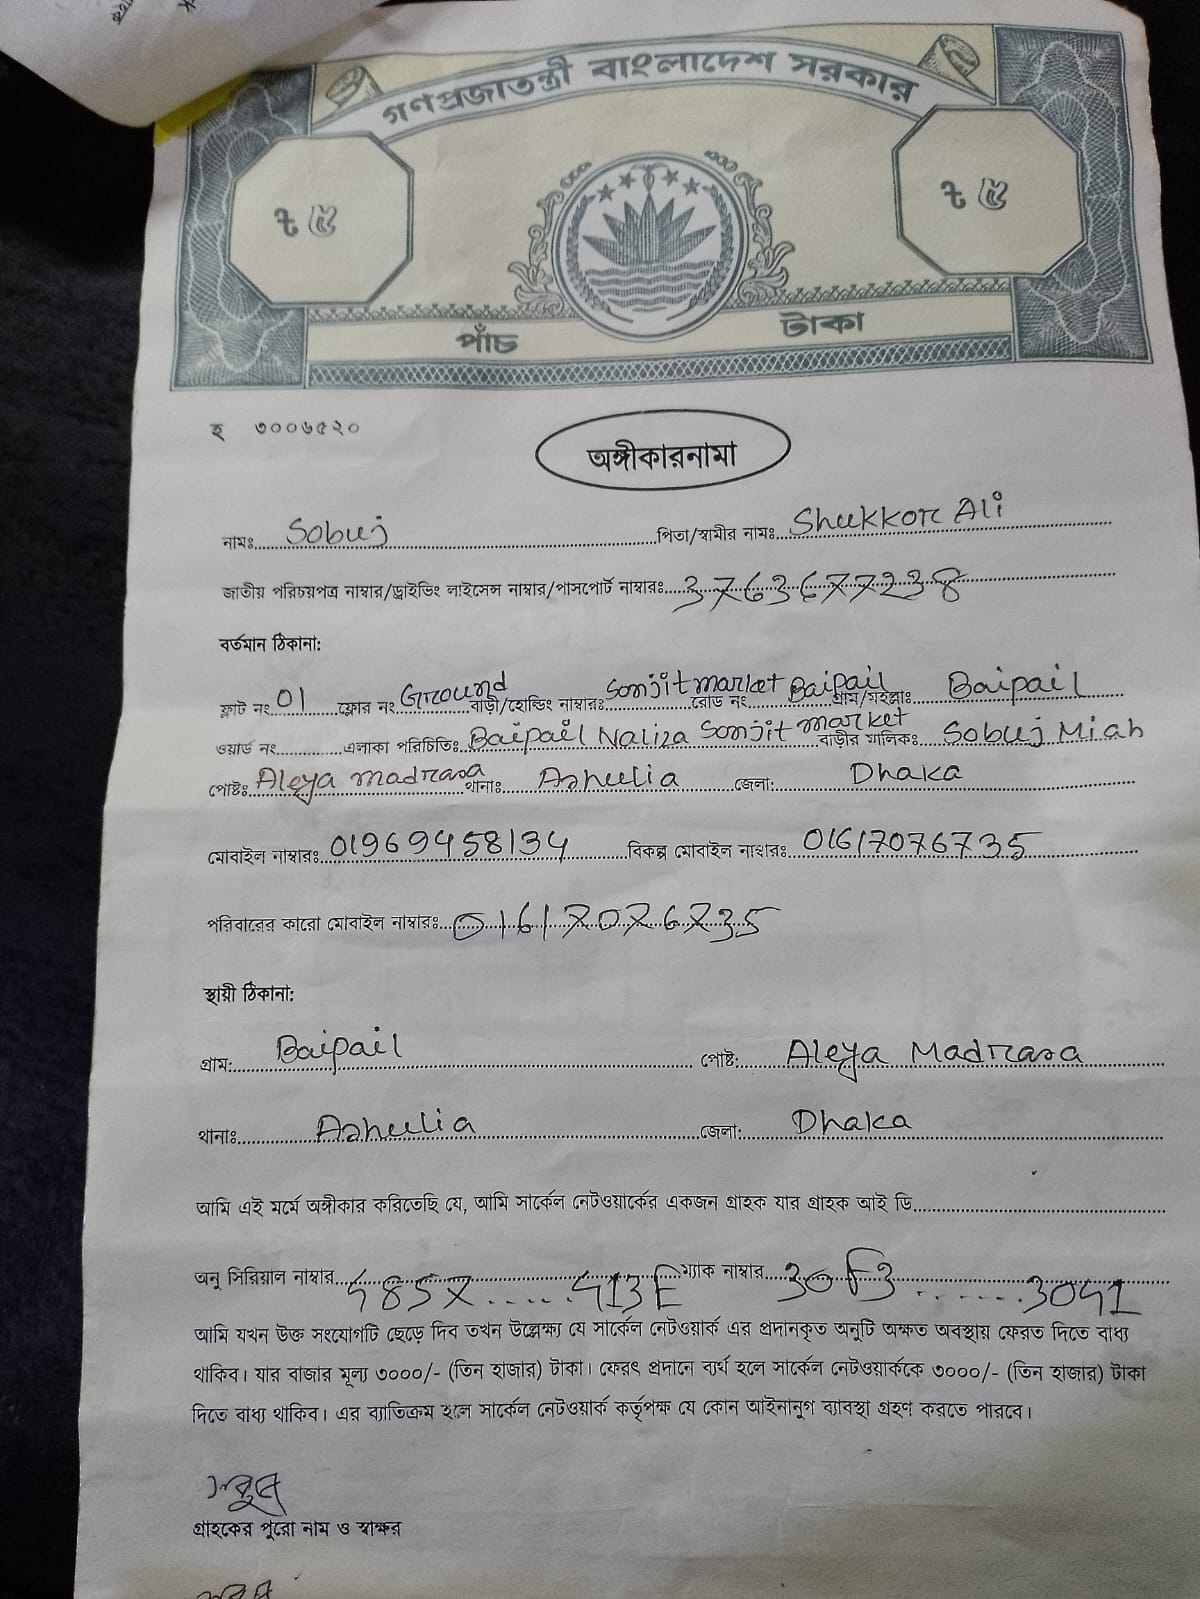 গণপ্রজাতন্ত্রী বাংলাদেশ সরকার
৳ ৫ ৳ ৫
পাঁচ টাকা
হ ৩০০৬৫২০
অঙ্গীকারনামা
নামঃ Sobuj পিতা/স্বামীর নামঃ Shukkor Ali
জাতীয় পরিচয়পত্র নাম্বার/ড্রাইভিং লাইসেন্স নাম্বার/পাসপোর্ট নাম্বারঃ 3763677238
বর্তমান ঠিকানা:
ফ্লাট নং 01 ফ্লোর নং Ground বাড়ী/হোল্ডিং নাম্বারঃ Sonjit market রোড নং Baipail গ্রাম/মহল্লাঃ Baipail
ওয়ার্ড নং এলাকা পরিচিতিঃ Baipail Naliza Sonjit market বাড়ীর মালিকঃ Sobuj Miah
পোষ্টঃ Aleya madrasa থানাঃ Ashulia জেলা: Dhaka
মোবাইল নাম্বারঃ 01969458134 বিকল্প মোবাইল নাম্বারঃ 01617076735
পরিবারের কারো মোবাইল নাম্বারঃ 01617076735
স্থায়ী ঠিকানা:
গ্রাম: Baipail পোষ্ট: Aleya Madrasa
থানাঃ Ashulia জেলা: Dhaka
আমি এই মর্মে অঙ্গীকার করিতেছি যে, আমি সার্কেল নেটওয়ার্কের একজন গ্রাহক যার গ্রাহক আই ডি
অনু সিরিয়াল নাম্বার 485X......413E ম্যাক নাম্বার 30F3.......3041
আমি যখন উক্ত সংযোগটি ছেড়ে দিব তখন উল্লেক্ষ্য যে সার্কেল নেটওয়ার্ক এর প্রদানকৃত অনুটি অক্ষত অবস্থায় ফেরত দিতে বাধ্য
থাকিব। যার বাজার মূল্য ৩০০০/- (তিন হাজার) টাকা। ফেরৎ প্রদানে ব্যর্থ হলে সার্কেল নেটওয়ার্ককে ৩০০০/- (তিন হাজার) টাকা
দিতে বাধ্য থাকিব। এর ব্যাতিক্রম হলে সার্কেল নেটওয়ার্ক কর্তৃপক্ষ যে কোন আইনানুগ ব্যাবস্থা গ্রহণ করতে পারবে।
সবুজ
গ্রাহকের পুরো নাম ও স্বাক্ষর